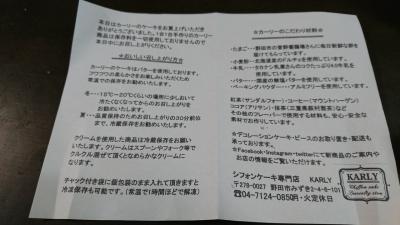 本日はカーリーのケーキをお買上げいただき
ありがとうございました。1台1台手作りのカーリー
商品は保存料を一切使用しておりませんので
本日中にお召し上がりください。
★おいしいお召し上がり方
カーリーのケーキはバターを使用しております。
フワフワの柔らかさをお楽しみいただくため
常温での保存をお勧めいたします。
冬…18℃~20℃くらいの場所に少しおいて
冷たくなくなってからのお召し上がりを
お勧めいたします。
夏…品質保持のためお召し上がりの30分前位
まで、冷蔵保存をお勧めいたします。
クリームを使用した商品は冷蔵保存をお勧め
いたします。クリームはスプーンやフォーク等で
クルクル混ぜて頂くとなめらかなクリームに
なります。
チャック付き袋に個包装のまま入れて頂きますと
冷凍保存も可能です。(常温で1時間ほどで解凍)
☆カーリーのこだわり材料☆
・たまご…野田市の
・小麦粉…北海道産のドルチェを使用しています。
・牛乳…
・バター…国産の無塩バターを使用しています。
・ベーキングパウダー…アルミフリーを使用しています。
紅茶(サンダルフォー)・コーヒー(マウントハーゲン)
その他のフレーバーで使用する材料も、安心・安全な
素材で作りしています。
★デコレーションケーキ・ピースのお取り置き・配送も
承っております。
☆Facebook・Instagram・twitterにて新商品のご案内や
お店の情報をご覧いただけます。
シフォンケーキ専門店 KARLY
〒278-0027 野田市みずき2-4-8-101
☎04-7124-0850㈫・火定休日
KARLY
Chiffon cake
Speciality store